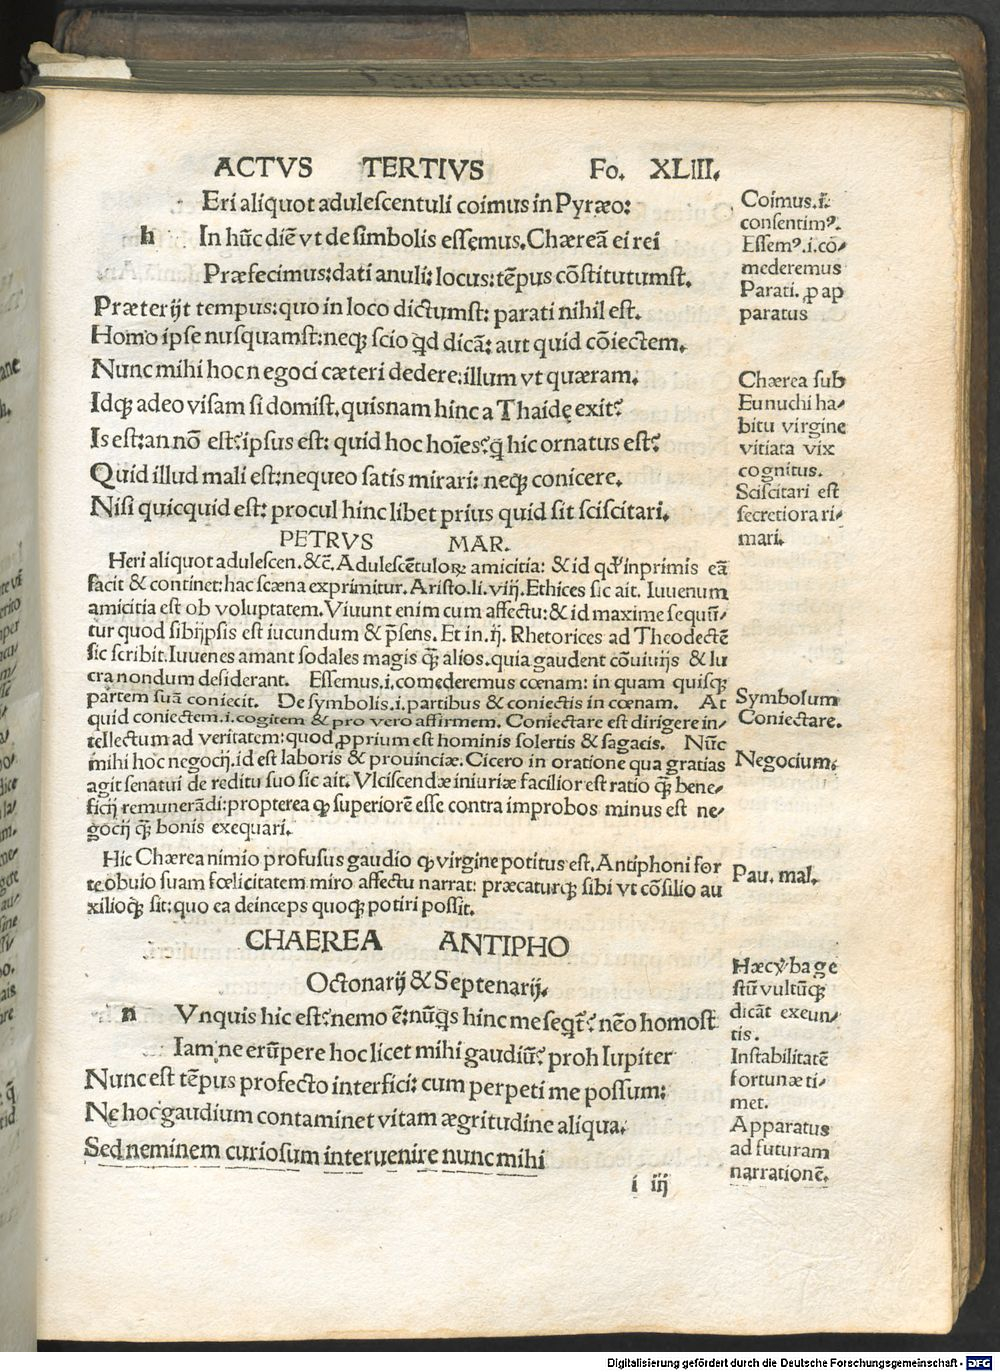 ACTVS TERTIVS Fo. XLIII.
h Eri aliquot adulescentuli coimus in Pyræo:
In hūc diē vt de simbolis essemus. Chæreā ei rei
Præfecimus: dati anuli: locus: tēpus cōstitutumst.
Præterijt tempus: quo in loco dictumst: parati nihil est.
Homo ipse nusquamst: neqꝫ scio qͥd dicā: aut quid cōiectem.
Nunc mihi hoc negoci cæteri dedere: illum vt quæram.
Idqꝫ adeo visam si domist. quisnam hinc a Thaidę exit?
Is est: an nō est? ipsus est: quid hoc hoīes? qͥ hic ornatus est?
Quid illud mali est: nequeo satis mirari: neqꝫ conicere.
Nisi quicquid est: procul hinc libet prius quid sit sciscitari.
Coimus. i.
consentimꝰ.
Essemꝰ. i. cō-
mederemus
Parati. ꝓ ap
paratus
Chærea sub
Eunuchi ha-
bitu virgine
vitiata vix
cognitus.
Sciscitari est
secretiora ri-
mari.
PETRVS MAR.
Heri aliquot adulescen. &c̄. Adulescētuloꝝ amicitia: & id qd̓ inprimis eā
facit & continet: hac scæna exprimitur. Aristo. li. viij. Ethices sic ait. Iuuenum
amicitia est ob voluptatem. Viuunt enim cum affectu: & id maxime sequū-
tur quod sibijpsis est iucundum & p̄sens. Et in. ij. Rhetorices ad Theodectē
sic scribit. Iuuenes amant sodales magis q̄ꝫ alios. quia gaudent cōuiuijs & lu
cra nondum desiderant. Essemus. i. comederemus cœnam: in quam quisqꝫ
partem suā coniecit. De symbolis. i. partibus & coniectis in cœnam. At
quid coniectem. i. cogitem & pro vero affirmem. Coniectare est dirigere in-
tellectum ad veritatem: quod ꝓprium est hominis solertis & sagacis. Nūc
mihi hoc negocij. id est laboris & prouinciæ. Cicero in oratione qua gratias
agit senatui de reditu suo sic ait. Vlciscendæ iniuriæ facilior est ratio q̄ꝫ bene-
ficij remunerādi: propterea ꝙ superiorē esse contra improbos minus est ne-
gocij q̄ꝫ bonis exequari.
Symbolum
Coniectare.
Negocium.
Hic Chærea nimio profusus gaudio ꝙ virgine potitus est. Antiphoni for
te obuio suam fœlicitatem miro affectu narrat: præcaturqꝫ sibi vt cōsilio au
xilioqꝫ sit: quo ea deinceps quoqꝫ potiri possit.
Pau. mal.
CHAEREA ANTIPHO
Octonarij & Septenarij.
n Vnquis hic est? nemo ē: nūqͥs hinc me seqt̄? nēo homost
Iam ne erūpere hoc licet mihi gaudiū? proh Iupiter
Nunc est tēpus profecto interfici: cum perpeti me possum:
Ne hoc gaudium contaminet vitam ægritudine aliqua.
Sed neminem curiosum interuenire nunc mihi
Hæc ẏba ge
stū vultūqꝫ
dicāt exeun-
tis.
Instabilitatē
fortunæ ti-
met.
Apparatus
ad futuram
narrationē.
i iij
Digitalisierung gefördert durch die Deutsche Forschungsgemeinschaft - DFG